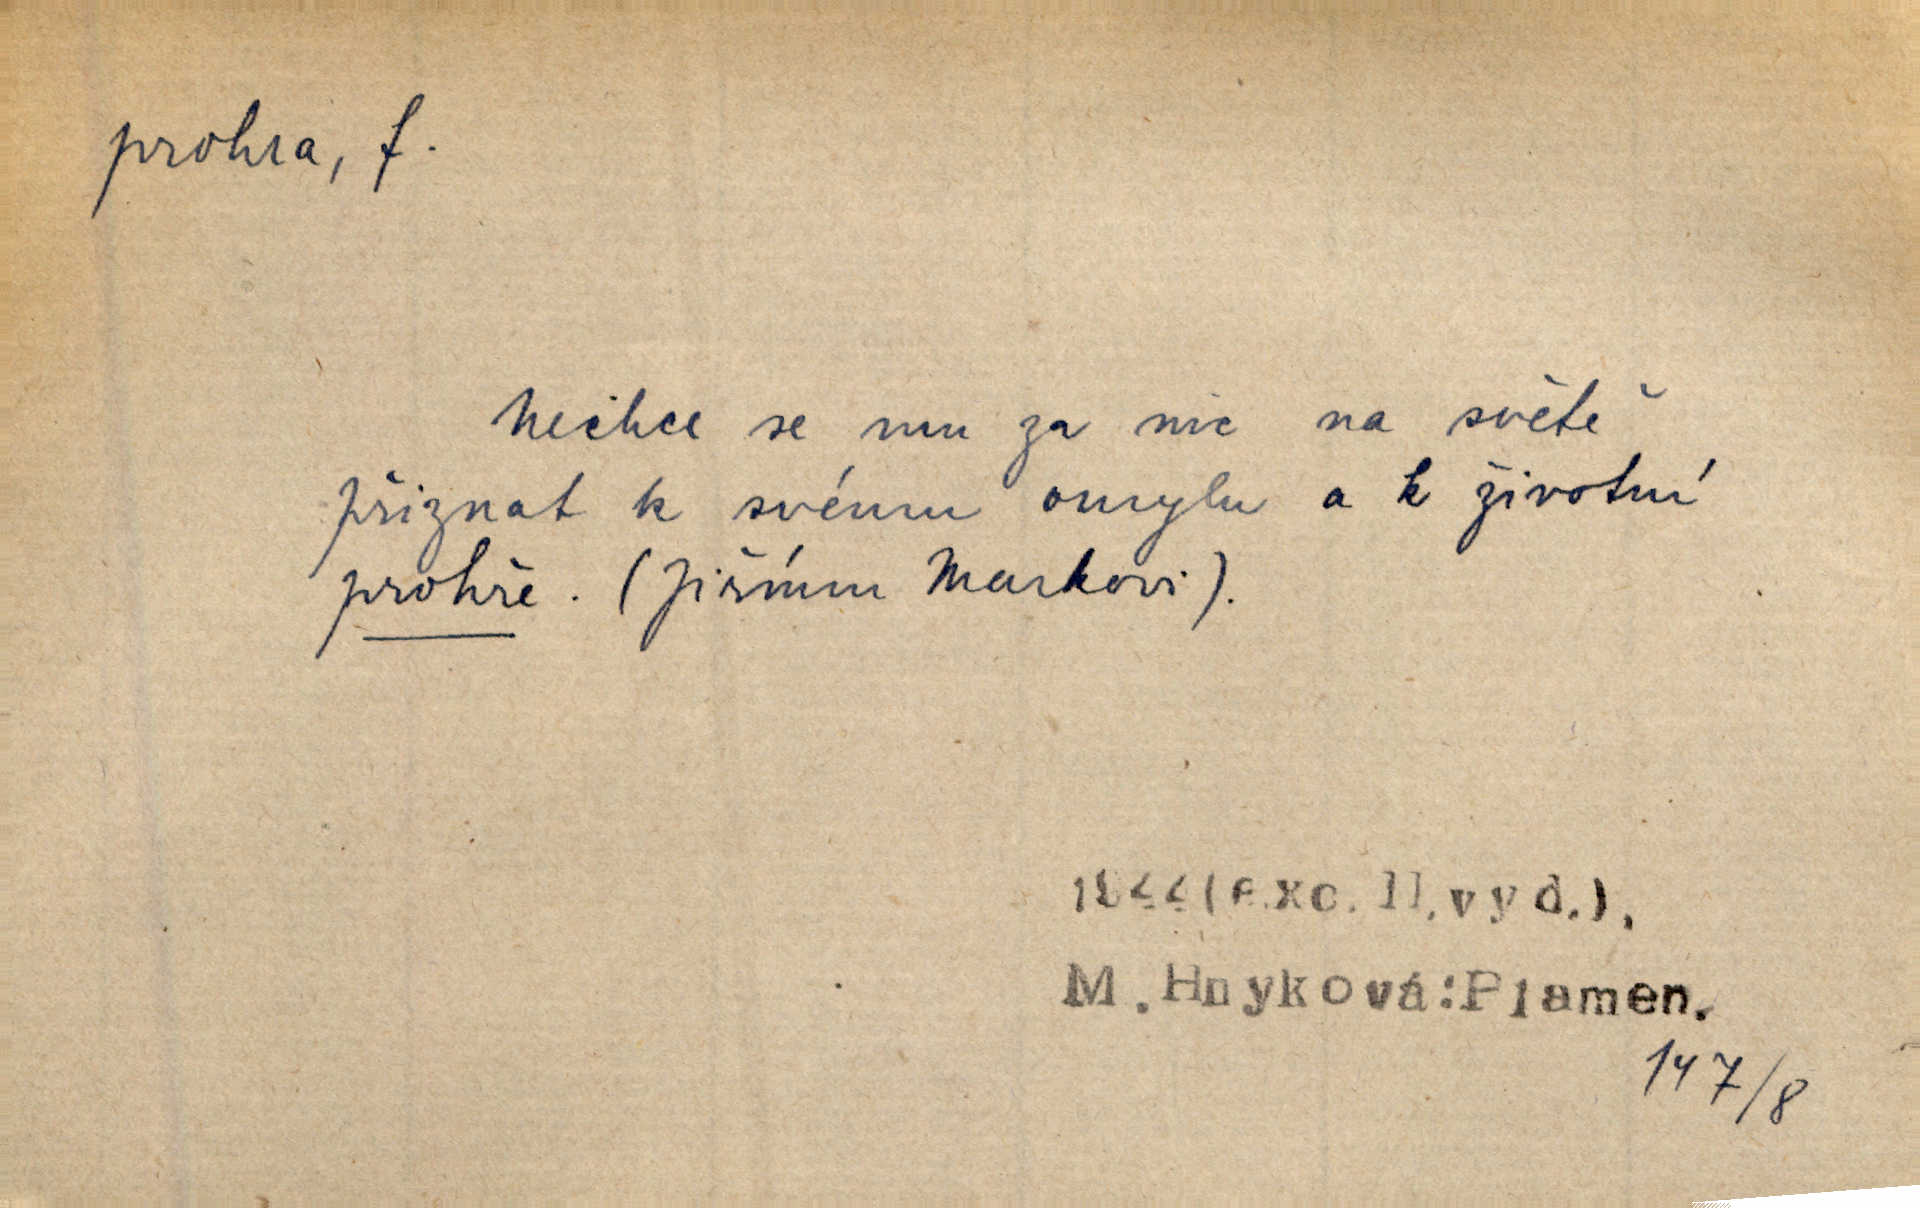 prohra, f.
Nechce se mu za nic na světě
přiznat k svému omylu a k životní
prohře. (Jiřímu Markovi).
1944(exc.II.vyd.),
M.Hnyková:Plamen.
147/8